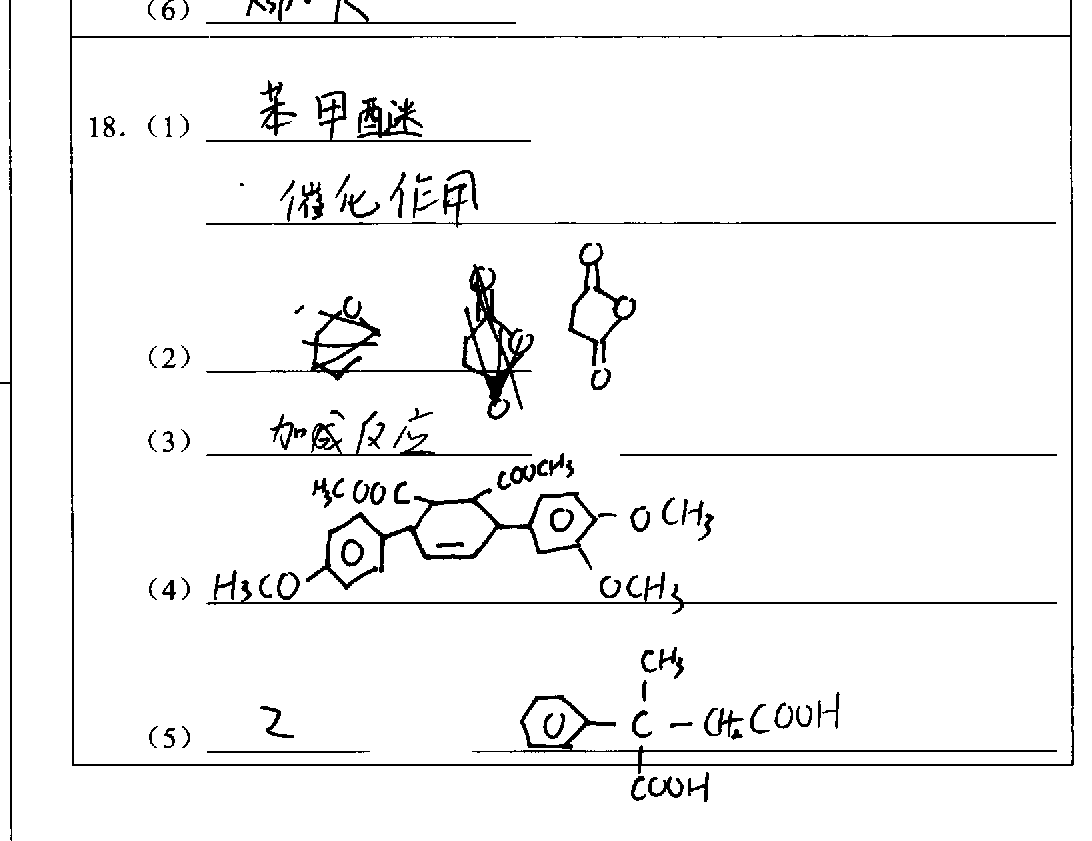 (6)
18. (1) 苯甲醚
催化作用
(2) O O O O O O O
(3) 加成反应
H3COOC COOCH3
OCH3
(4) H3CO OCH3
CH3
(5) 2 C - CH2COOH
COOH